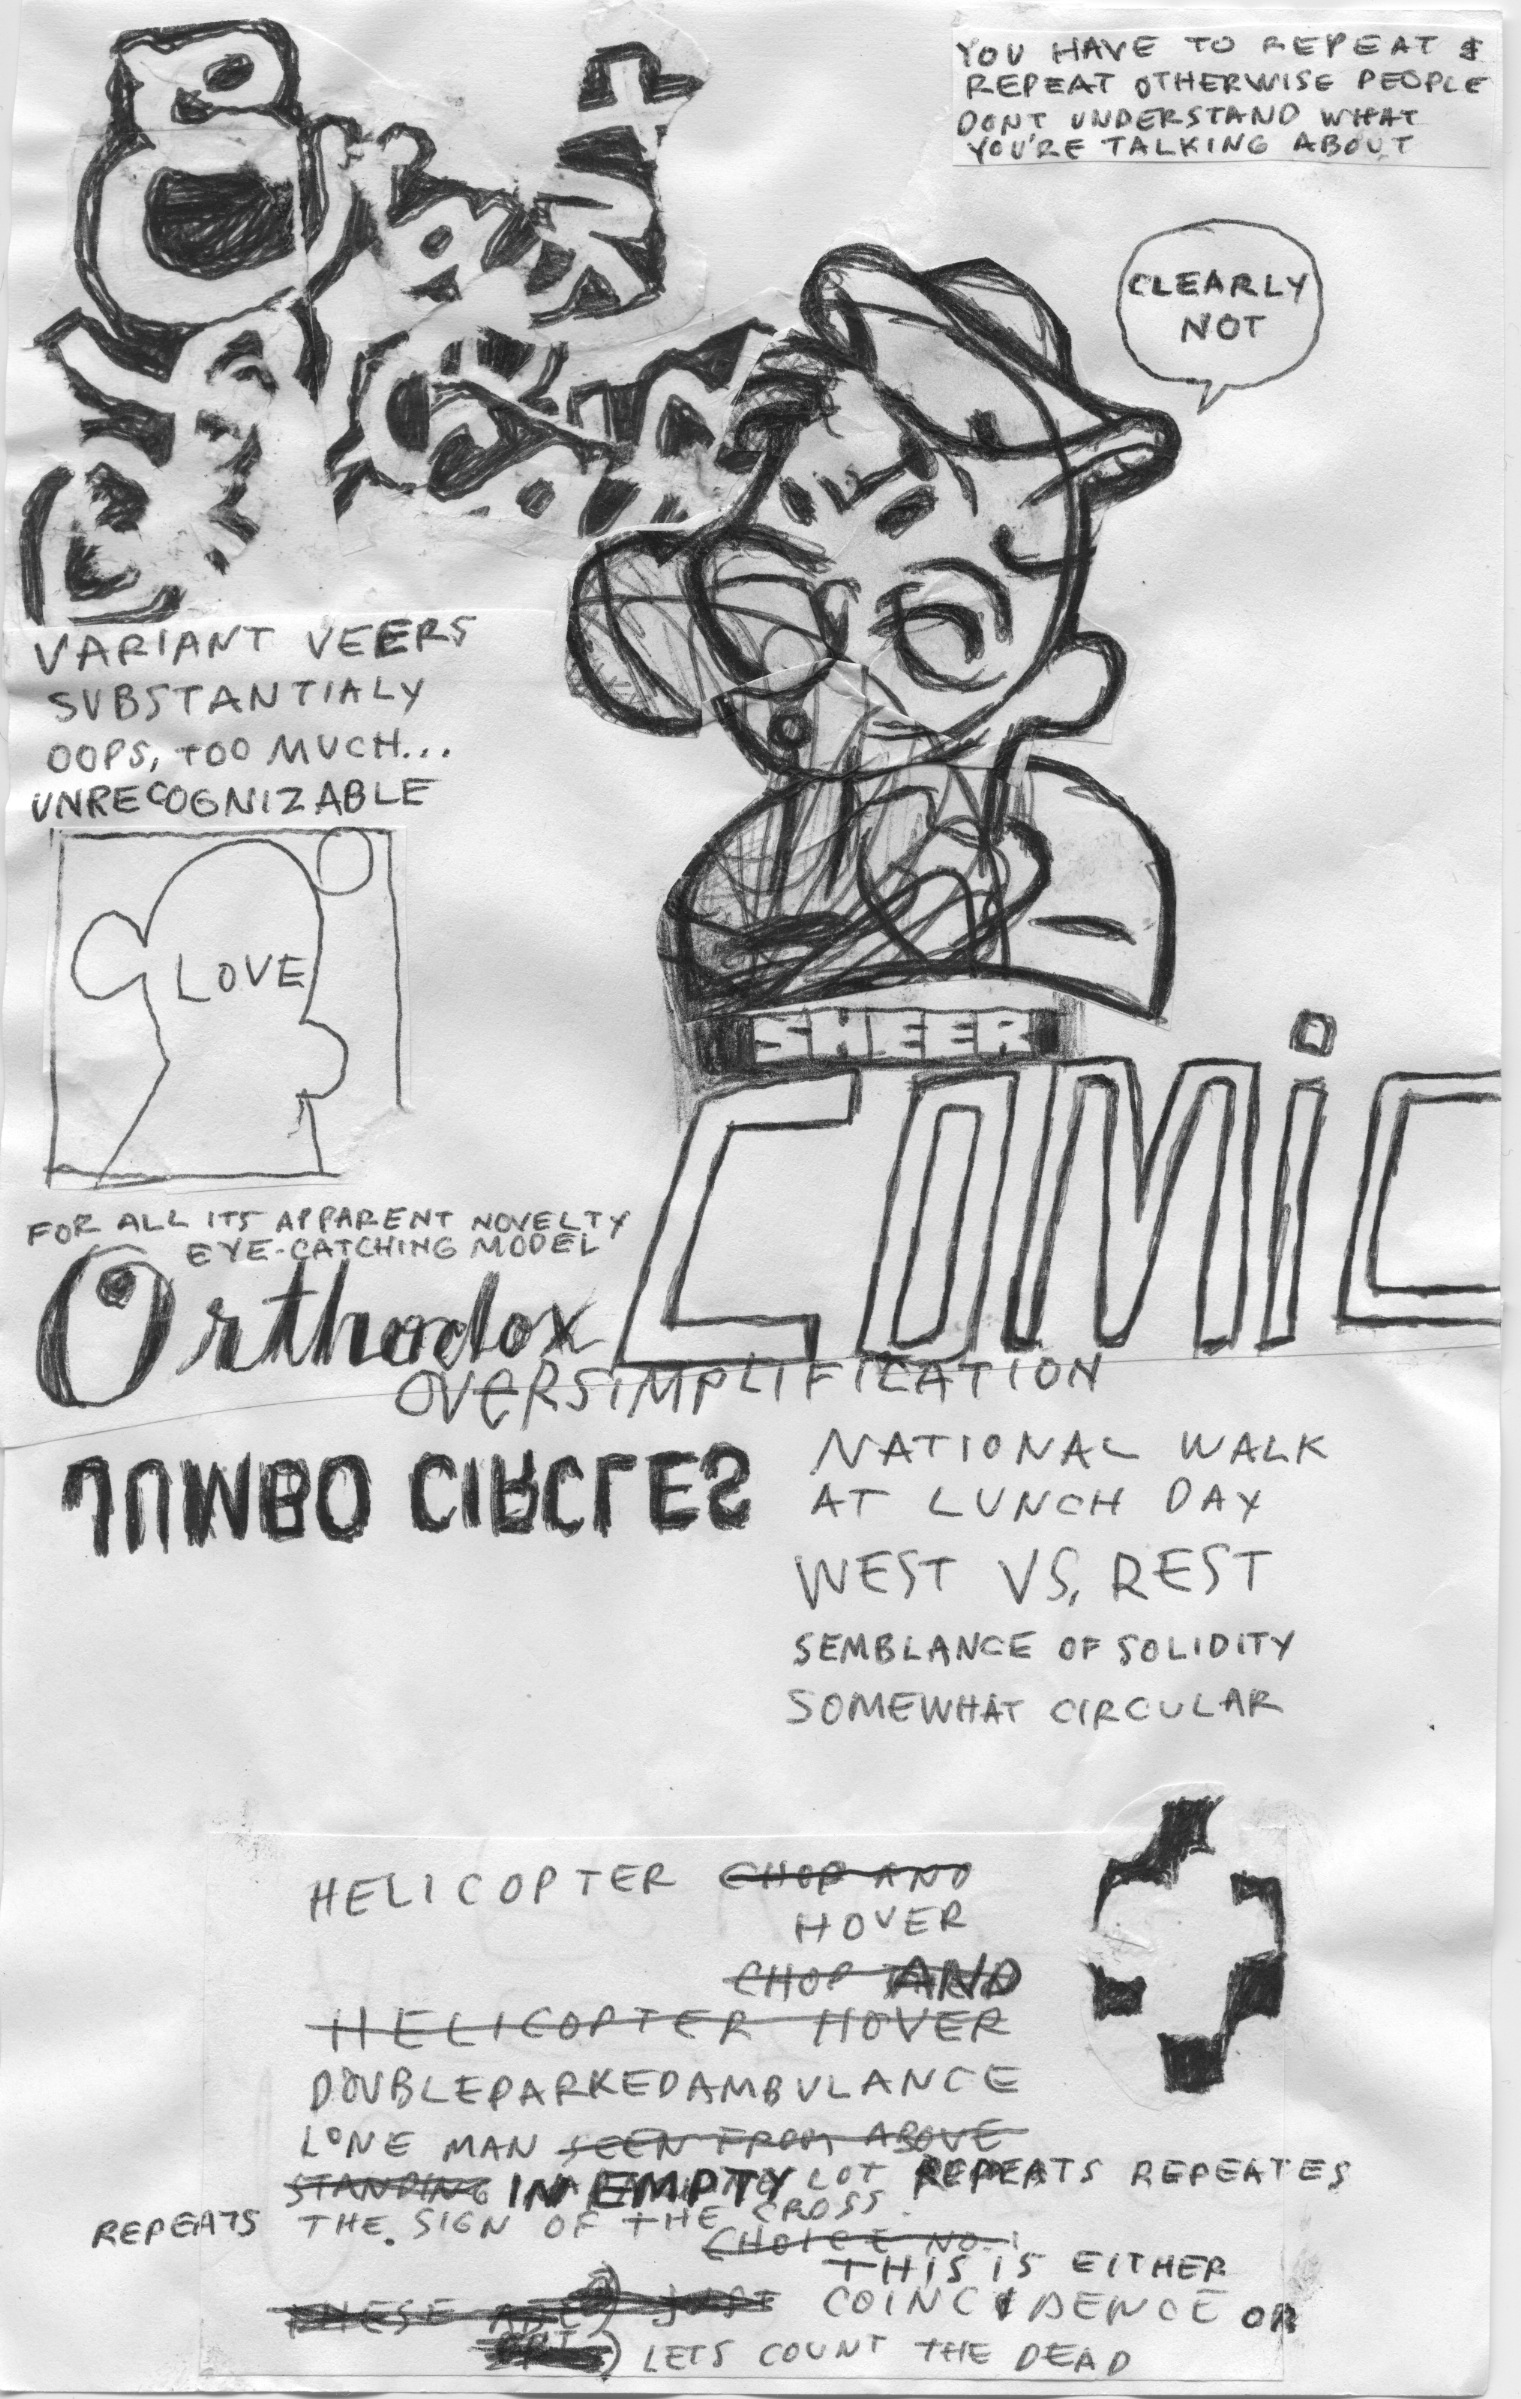 YOU HAVE TO REPEAT &
REPEAT OTHERWISE PEOPLE
DONT UNDERSTAND WHAT
YOU'RE TALKING ABOUT
CLEARLY
NOT
VARIANT VEERS
SUBSTANTIALY
OOPS, TOO MUCH...
UNRECOGNIZABLE
LOVE
SHEER
COMiC
FOR ALL ITS APPARENT NOVELTY
EYE-CATCHING MODEL
Orthodox
OVERSIMPLIFICATION
JUMBO CIRCLES
NATIONAL WALK
AT LUNCH DAY
WEST VS. REST
SEMBLANCE OF SOLIDITY
SOMEWHAT CIRCULAR
HELICOPTER CHOP AND
HOVER
CHOP AND
HELICOPTER HOVER
DOUBLEPARKEDAMBULANCE
LONE MAN SEEN FROM ABOVE
STANDING IN EMPTY LOT REPEATS REPEATES
REPEATS THE SIGN OF THE CROSS.
CHOICE NO. 1
THIS IS EITHER
THESE ARE JUST COINCIDENCE OR
LETS COUNT THE DEAD